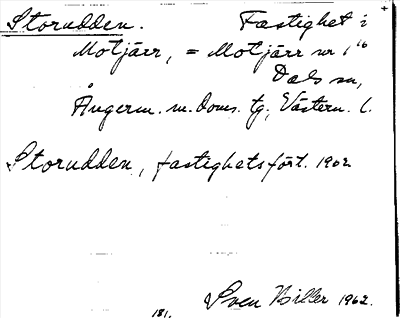 Storudden. Fastighet i
Motjärr, = Motjärr nr 1¹⁶
Dals sn,
Ångerm. m. Doms. tg., Västern. l.
Storudden, fastighetsfört. 1902
Sven Biller 1962.
181.